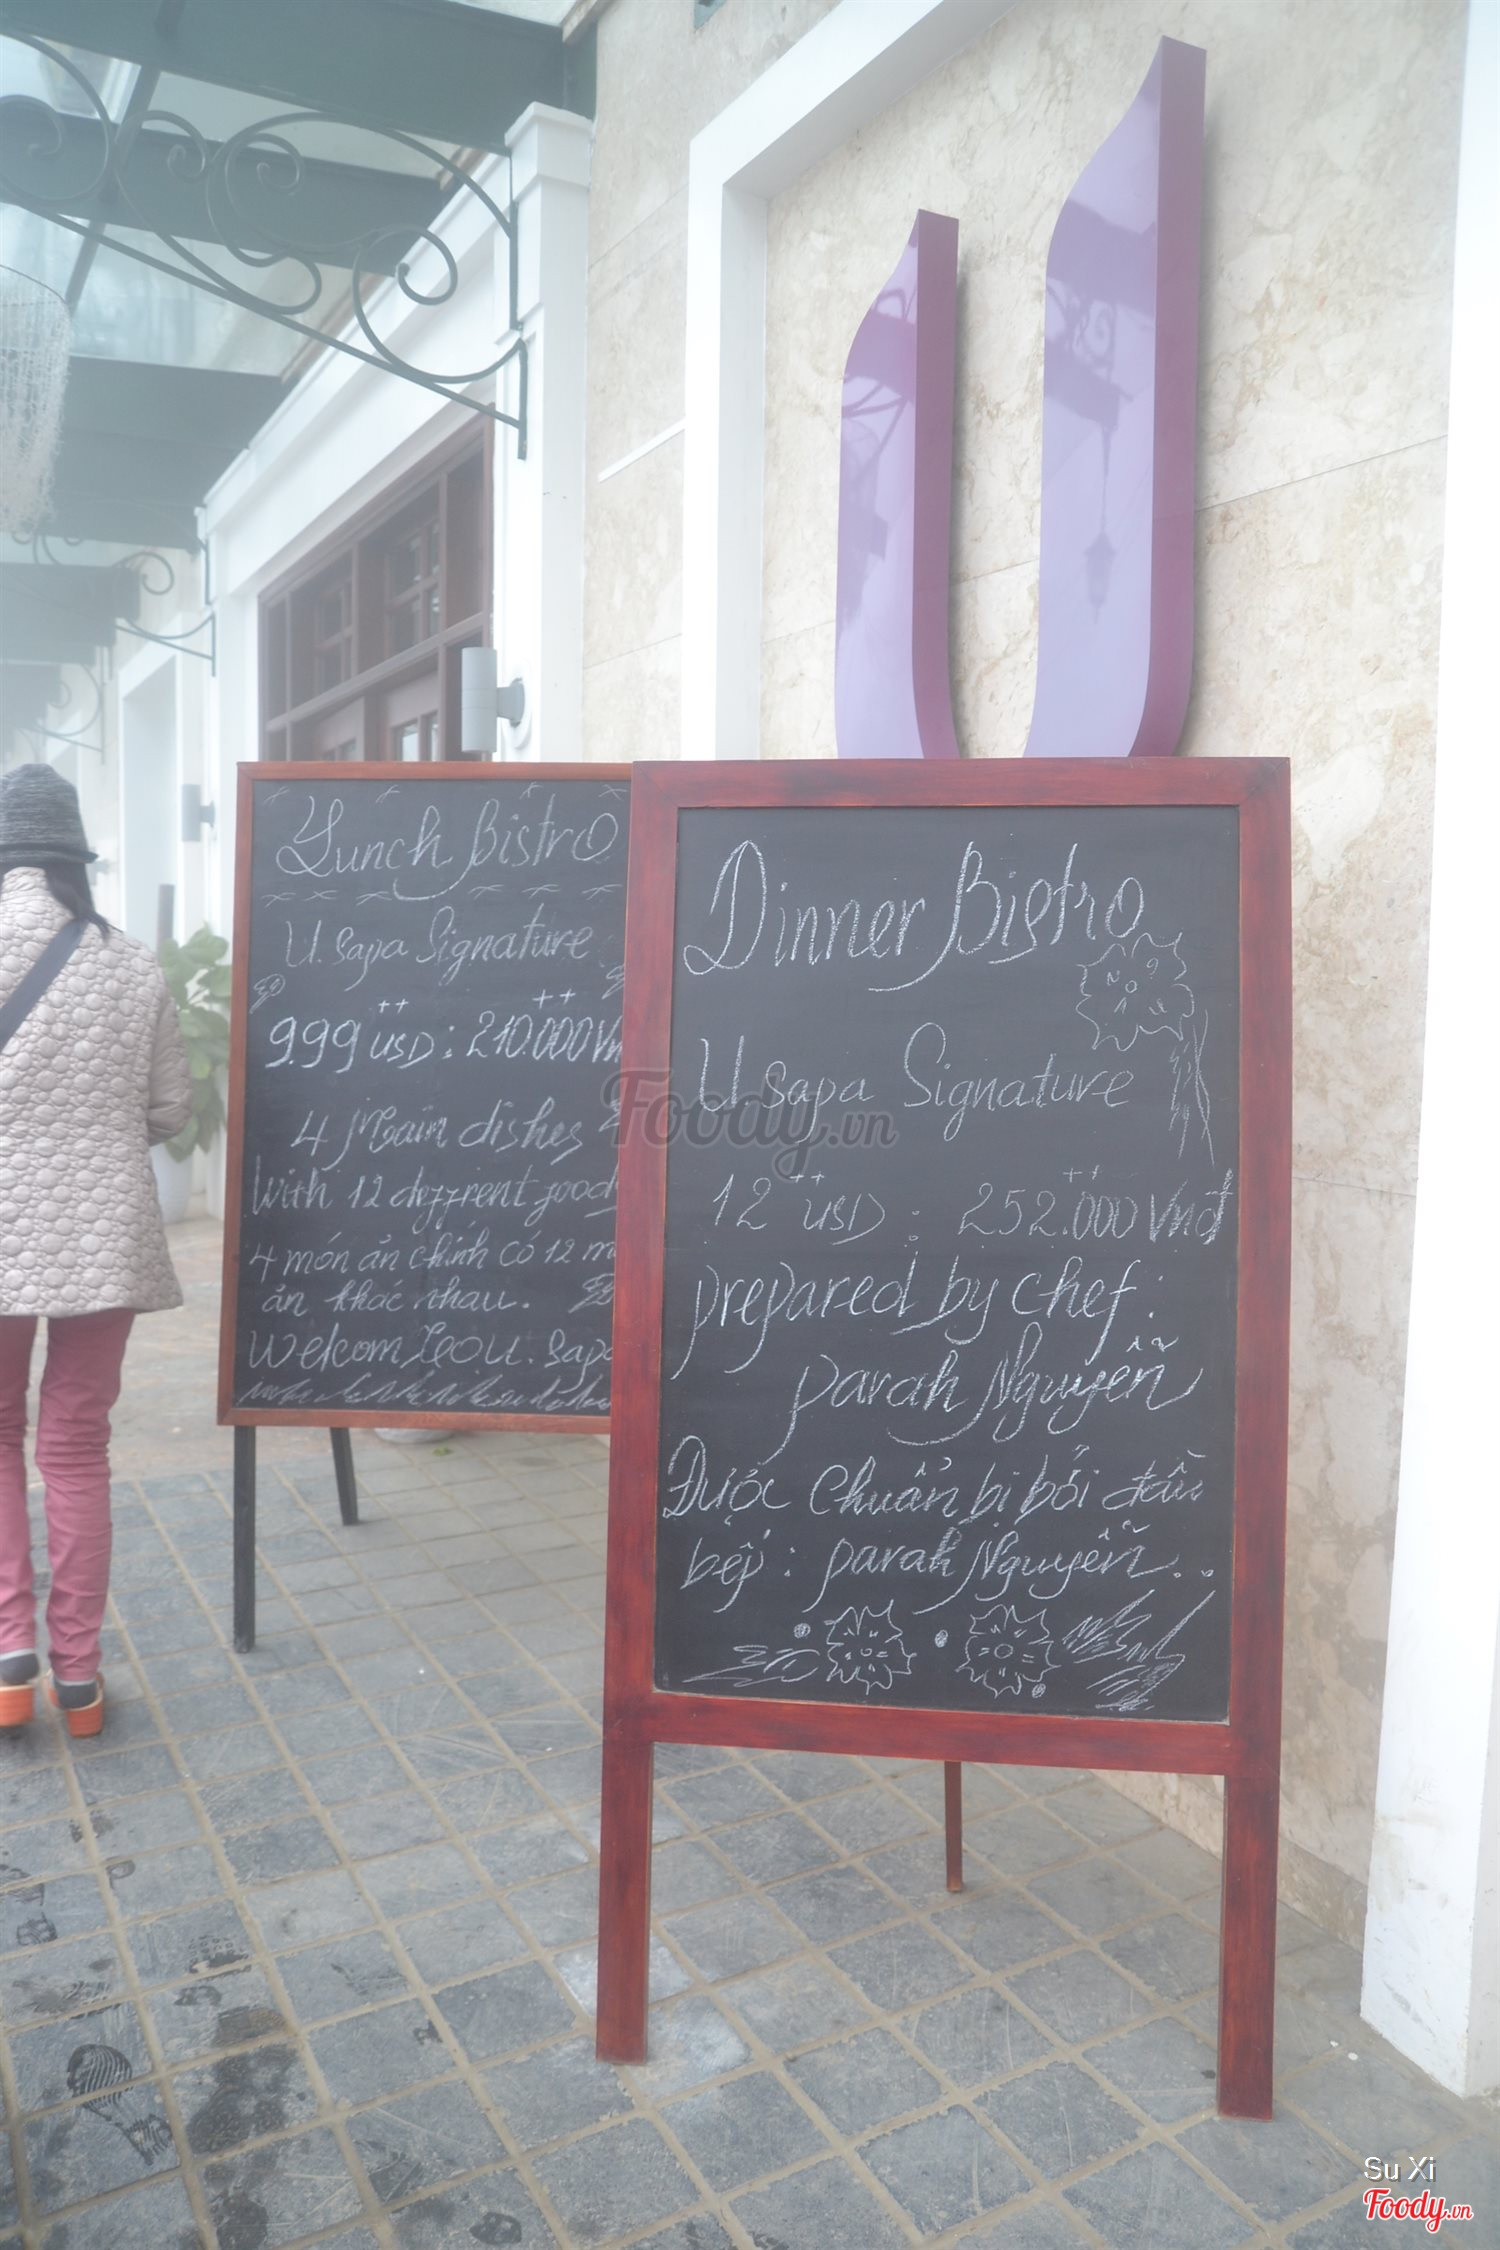 Lunch Bistro
U. sapa Signature
9.99 ++ USD : 210.000 ++
4 Main dishes
With 12 deffrent food
4 món ăn chính có 12 m
ăn khác nhau.
Welcom to U. sapa
Dinner Bistro
U sapa Signature
12 ++ USD : 252.000 ++ Vnđ
prepared by chef :
parah Nguyễn
Được chuẩn bị bởi đầu
bếp : parah Nguyễn..
Foody.vn
Su Xi
Foody.vn